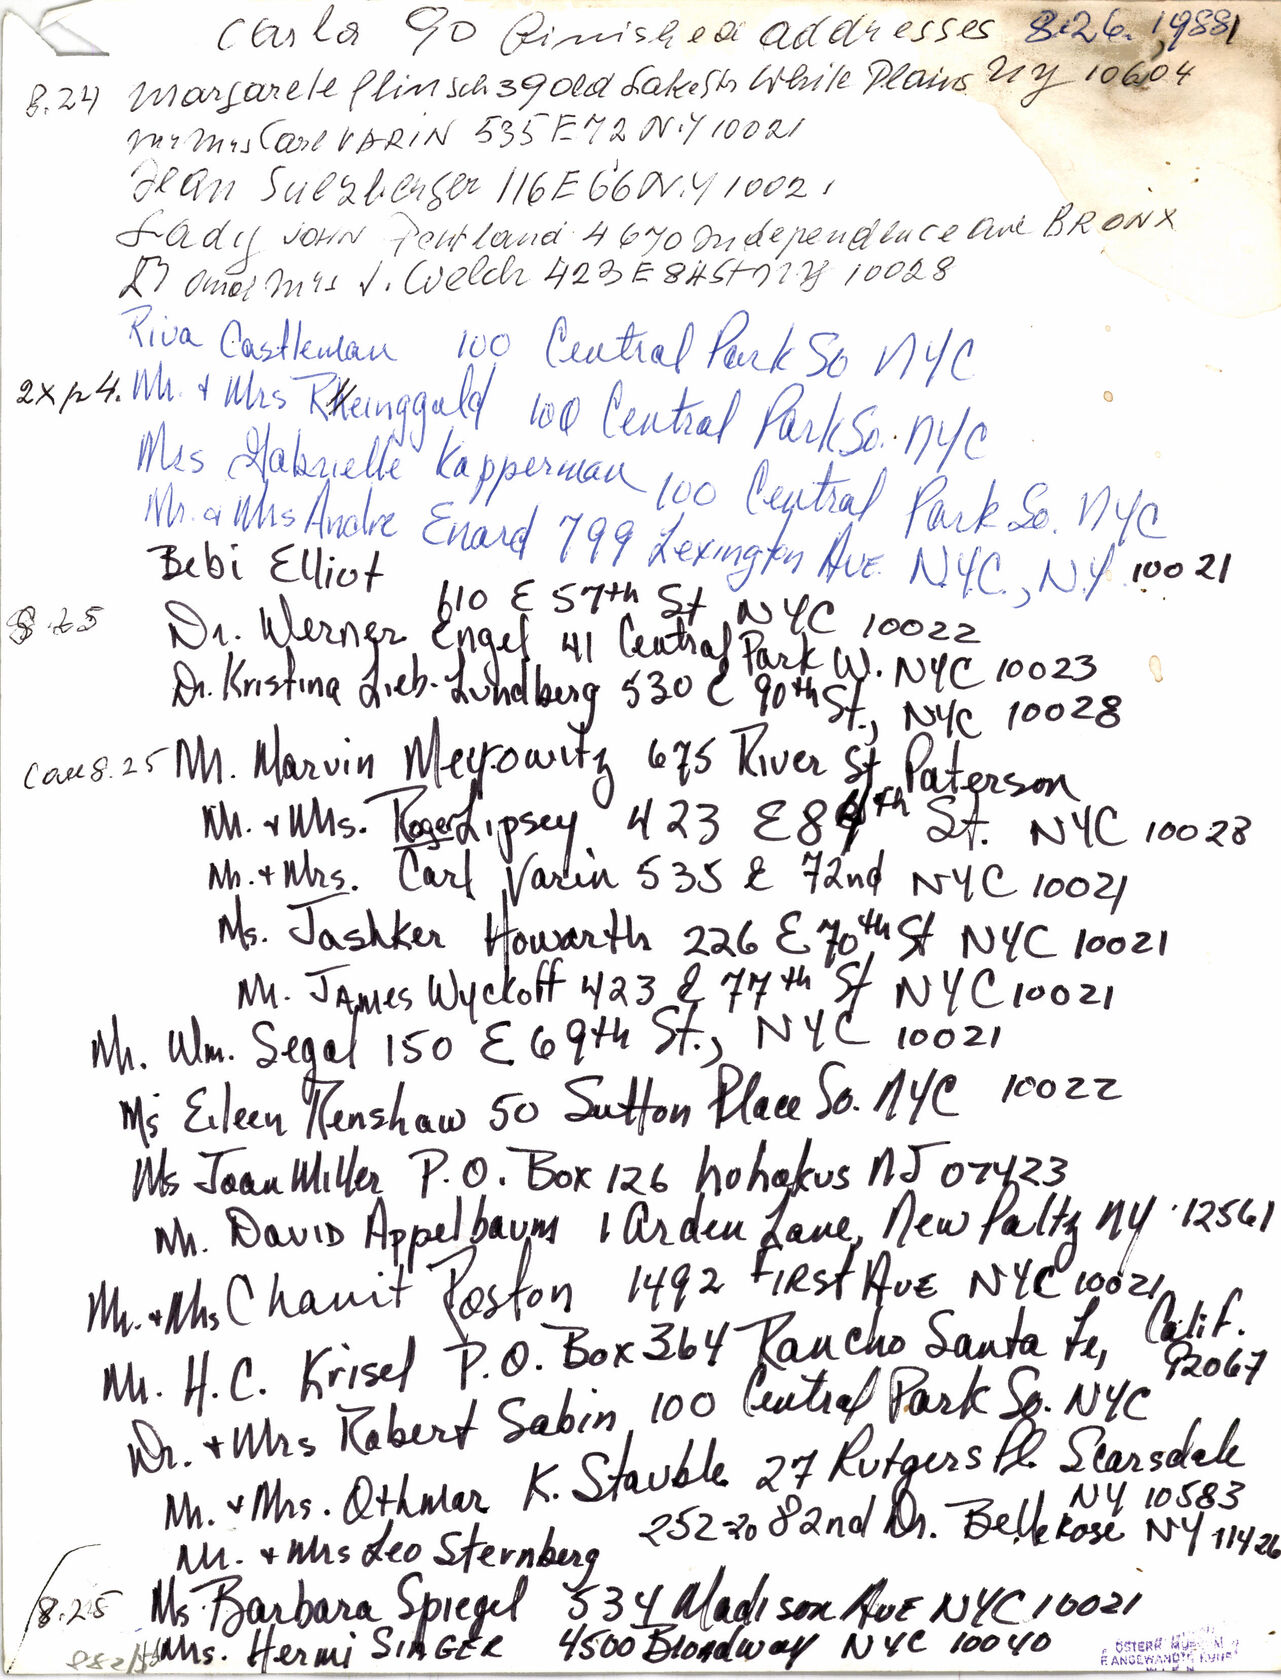 Carla 90 finished addresses 8.26.1988
8.24 Margarete Flinsch 39 Old Lake Str White Plains NY 10604
Mr Mrs Carl VARIN 535 E 72 N.Y 10021
Jean Sulzberger 116 E 66 N.Y 10021
Lady JOHN Pentland 4670 Independence ave BRONX
Dr and Mrs J. Welch 423 E 84 St NY 10028
Riva Castleman 100 Central Park So NYC
2x p4. Mr. + Mrs Rheinggold 100 Central Park So. NYC
Mrs Gabrielle Kapperman 100 Central Park So. NYC
Mr. & Mrs Andre Enard 799 Lexington Ave. N.Y.C., N.Y. 10021
Bebi Elliot 610 E 57th St NYC 10022
8.25 Dr. Werner Engel 41 Central Park W. NYC 10023
Dr. Kristina Lieb-Lundberg 530 E 90th St., NYC 10028
8.25 Mr. Marvin Meyrowitz 675 River St Paterson
Mr. + Mrs. Roger Lipsey 423 E 84th St. NYC 10028
Mr. + Mrs. Carl Varin 535 E 72nd NYC 10021
Ms. Tashker Howarth 226 E 70th St NYC 10021
Mr. JAMES Wyckoff 423 E 77th St NYC 10021
Mr. Wm. Segal 150 E 69th St., NYC 10021
Ms Eileen Renshaw 50 Sutton Place So. NYC 10022
Ms Joan Miller P.O. Box 126 hohokus NJ 07423
Mr. DAVID Appelbaum 1 Arden Lane, New Paltz NY 12561
Mr. + Mrs Chanit Roston 1492 FIRST AVE NYC 10021
Mr. H.C. Krisel P.O. Box 364 Rancho Santa Fe, Calif. 92067
Dr. + Mrs Robert Sabin 100 Central Park So. NYC
Mr. + Mrs. Othmar K. Stauble 27 Rutgers Pl. Scarsdale NY 10583
Mr. + Mrs Leo Sternberg 252-20 82nd Dr. Bellerose NY 11426
8.25 Ms. Barbara Spiegel 534 Madison AVE NYC 10021
Mrs. Hermi SINGER 4500 Broadway NYC 10040
ÖSTERR. MUSEUM
F. ANGEWANDTE KUNST